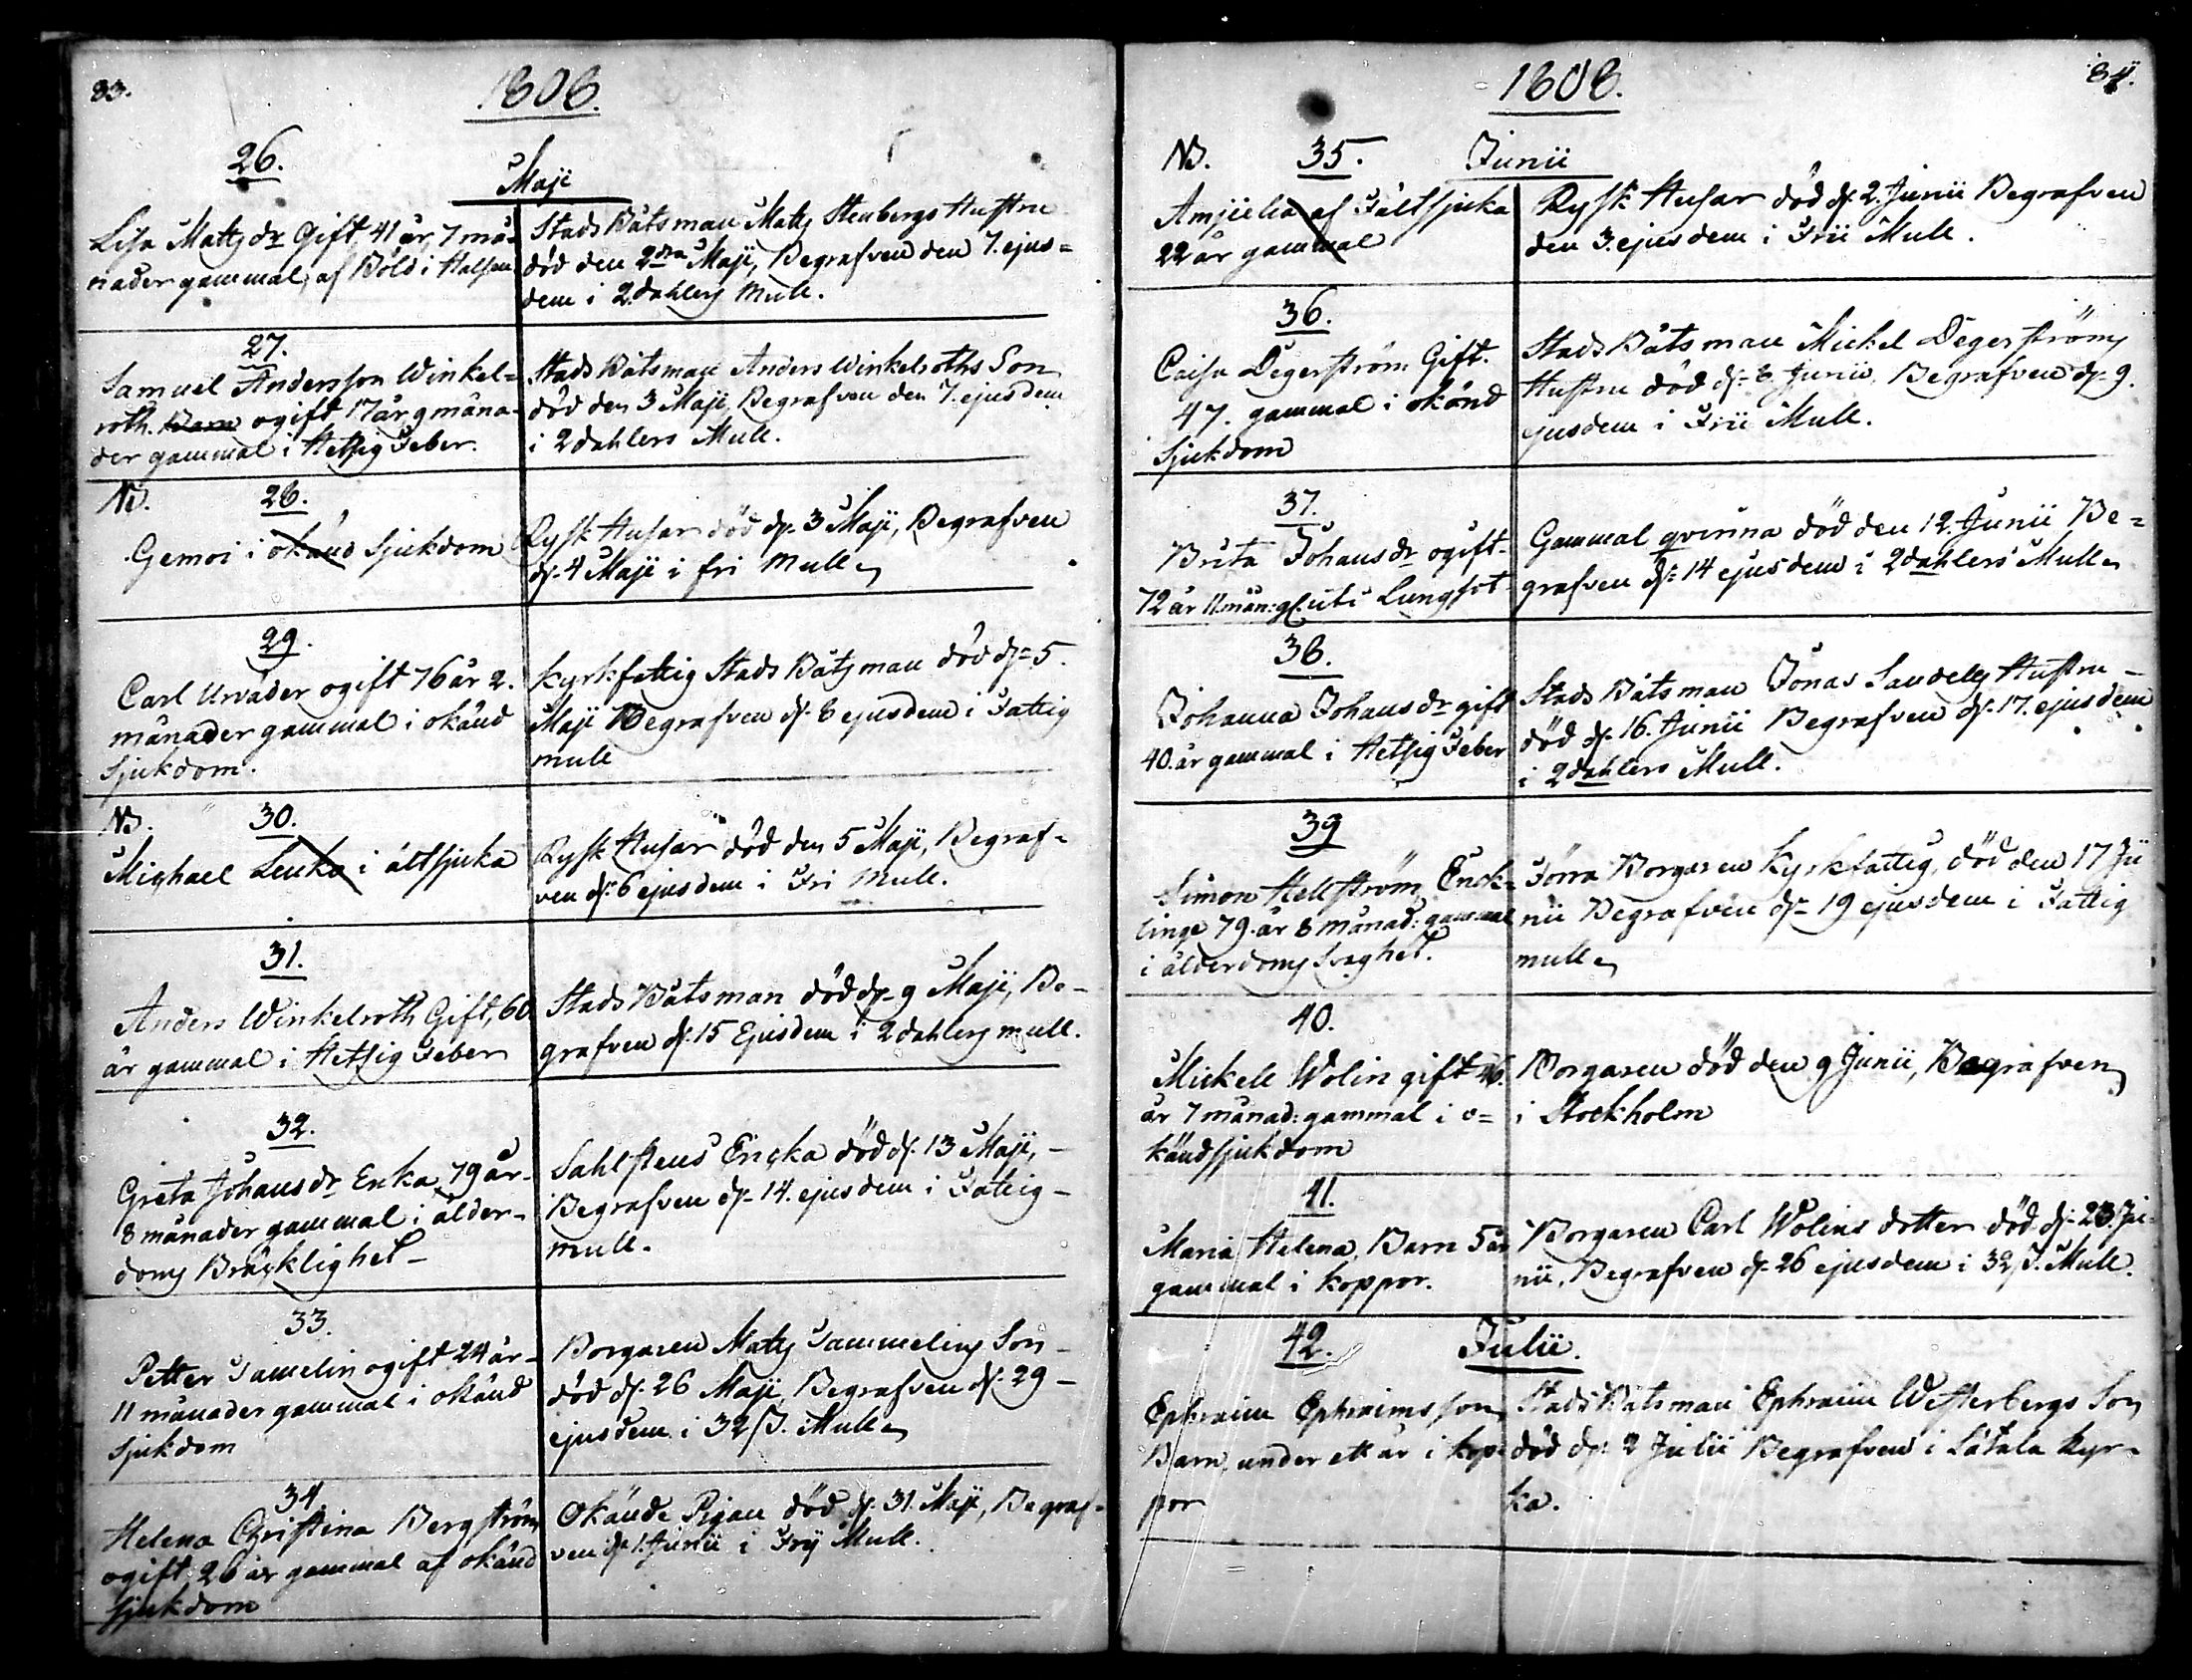 83.
1808.
26.
Maji
Lisa Matts dr Gift, 41 år, 7 må-
nader gammal, af Böld i Halsen
Stads Båtsman Matts Stenbergs Hustru
död den 2dra Maji, Begrafven den 7. ejus=
dem i 2 dahlers Mull.
27.
Samuel Andersson Winkel=
roth. Barn ogift 17 år 9 måna-
der gammal i Hetsig Feber.
Stads Båtsman Anders Winkelroths Son
död den 3 Maji, Begrafven den 7. ejusdem
i 2 dahlers Mull.
NB.
28.
Gemoi i okänd Sjukdom
Rysk Husar död d. 3 Maji, Begrafven
d. 4 Maji i fri Mull
29.
Carl Urväder ogift 76 år 2.
månader gammal i okänd
Sjukdom.
Kyrkfattig Stads Båtsman död d. 5.
Maji Begrafven d. 8 ejusdem i Fattig
mull
NB.
30.
Michael Lenko i ältsjuka
Rysk Husar död den 5 Maji, Begraf-
ven d. 6 ejusdem i Fri Mull.
31.
Anders Winkelroth Gift, 60
år gammal i Hetsig Feber
Stads Båtsman död d. 9 Maji, Be-
grafven d. 15 Ejusdem i 2 dahlers mull.
32.
Greta Johans dr Enka 79 år-
8 månader gammal i ålder-
doms Bräcklighet-
Sahlstens Encka död d. 13 Maji, -
Begrafven d. 14. ejusdem i Fattig-
mull.
33.
Petter Samelin ogift 24 år-
11 månader gammal i okänd
Sjukdom
Borgaren Matts Sammelins Son-
död d. 26 Maji Begrafven d. 29-
ejusdem i 32 ß. Mull
34
Helena Christina Bergström
ogift 26 år gammal af okänd
Sjukdom
Okände Pigan död d. 31. Maji, Begraf-
ven d. 1. Junii i Frij Mull.
1808.
84.
NB.
35.
Junii
af Fältsjuka
22 år gammal
Rysk Husar död d. 2. Junii Begrafven
den 3. ejusdem i Frii Mull.
36.
Caisa Degerström Gift.
47. gammal i okänd
Sjukdom
Stads Båtsman Mickel Degerströms
Hustru död d. 8 Junii, Begrafven d. 9.
ejusdem i Frii Mull.
37.
Brita Johans dr ogift-
72 år 11. mån: gl. uti Lungsot
Gammal qvinna död den 12. Junii Be=
grafven d. 14 ejusdem i 2 dahlers Mull
38.
Johanna Johans dr gift
40. år gammal i Hetsig Feber
Stads Båtsman Jonas Sandells Hustru-
död d. 16. Junii Begrafven d. 17. ejusdem
i 2 dahlers Mull.
39
Simon Hellström Enck=
linge 79. år 8 månad: gammal
i ålderdoms Svaghet.
Förra Borgaren Kyrkfattig, död den 17 Ju
nii Begrafven d. 19 ejusdem i Fattig
mull
40.
Mickell Wolin gift 46.
år 7 månad: gammal i o=
kändsjukdom
Borgaren död den 9 Junii, Begrafven
i Stockholm
41.
Maria Helena, Barn 5 år
gammal i koppor.
Borgaren Carl Wolins dotter död d. 23. Ju-
nii, Begrafven d. 26 ejusdem i 32 ß. Mull.
42.
Julii.
Ephraim Ephraimsson
Barn, under ett år i kop-
por
Stads Båtsman Ephraim Westerbergs Son
död d. 2 Julii Begrafven i Såtala Kyr-
ka.